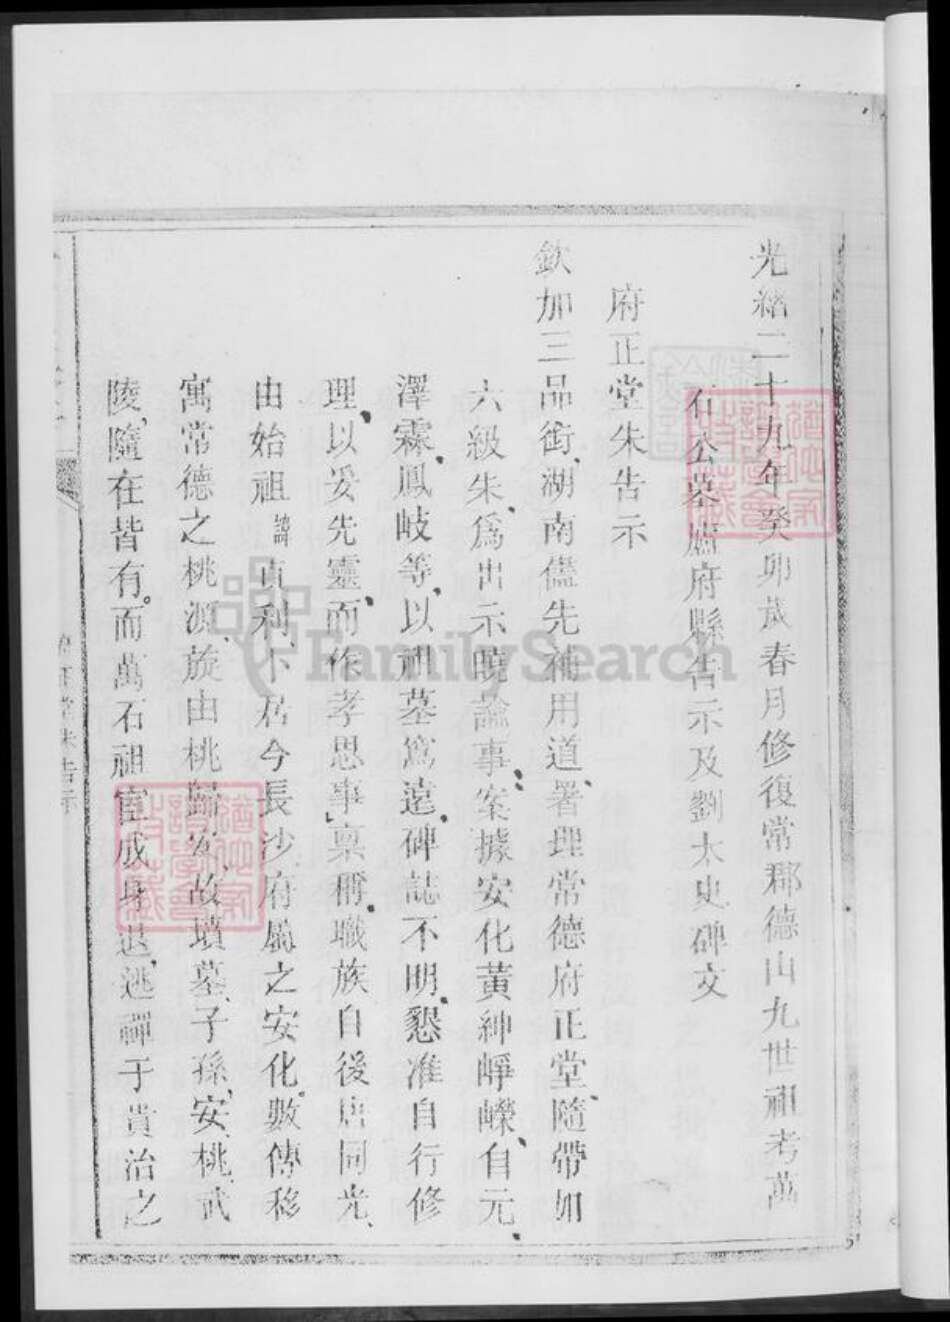 光緒二十九年癸卯歲春月修復常郡德山九世祖考萬
石公墓廬府縣告示及劉太史碑文
府正堂朱告示
欽加三品銜、湖南儘先補用道、署理常德府正堂、隨帶加
六級朱、爲出示曉諭事、案據安化黃紳崢嶸、自元、
澤霖、鳳岐等、以祖墓窵遠、碑誌不明、懇准自行修
理、以妥先靈、而作孝思事、稟稱、職族自後唐同光、
由始祖諱 吉利、卜居今長沙府屬之安化。數傳移
寓常德之桃源、旋由桃歸安、故墳墓、子孫、安、桃、武
陵、隨在皆有。而萬石祖宦成身退、逃禪于貴治之
府正堂朱告示
FamilySearch